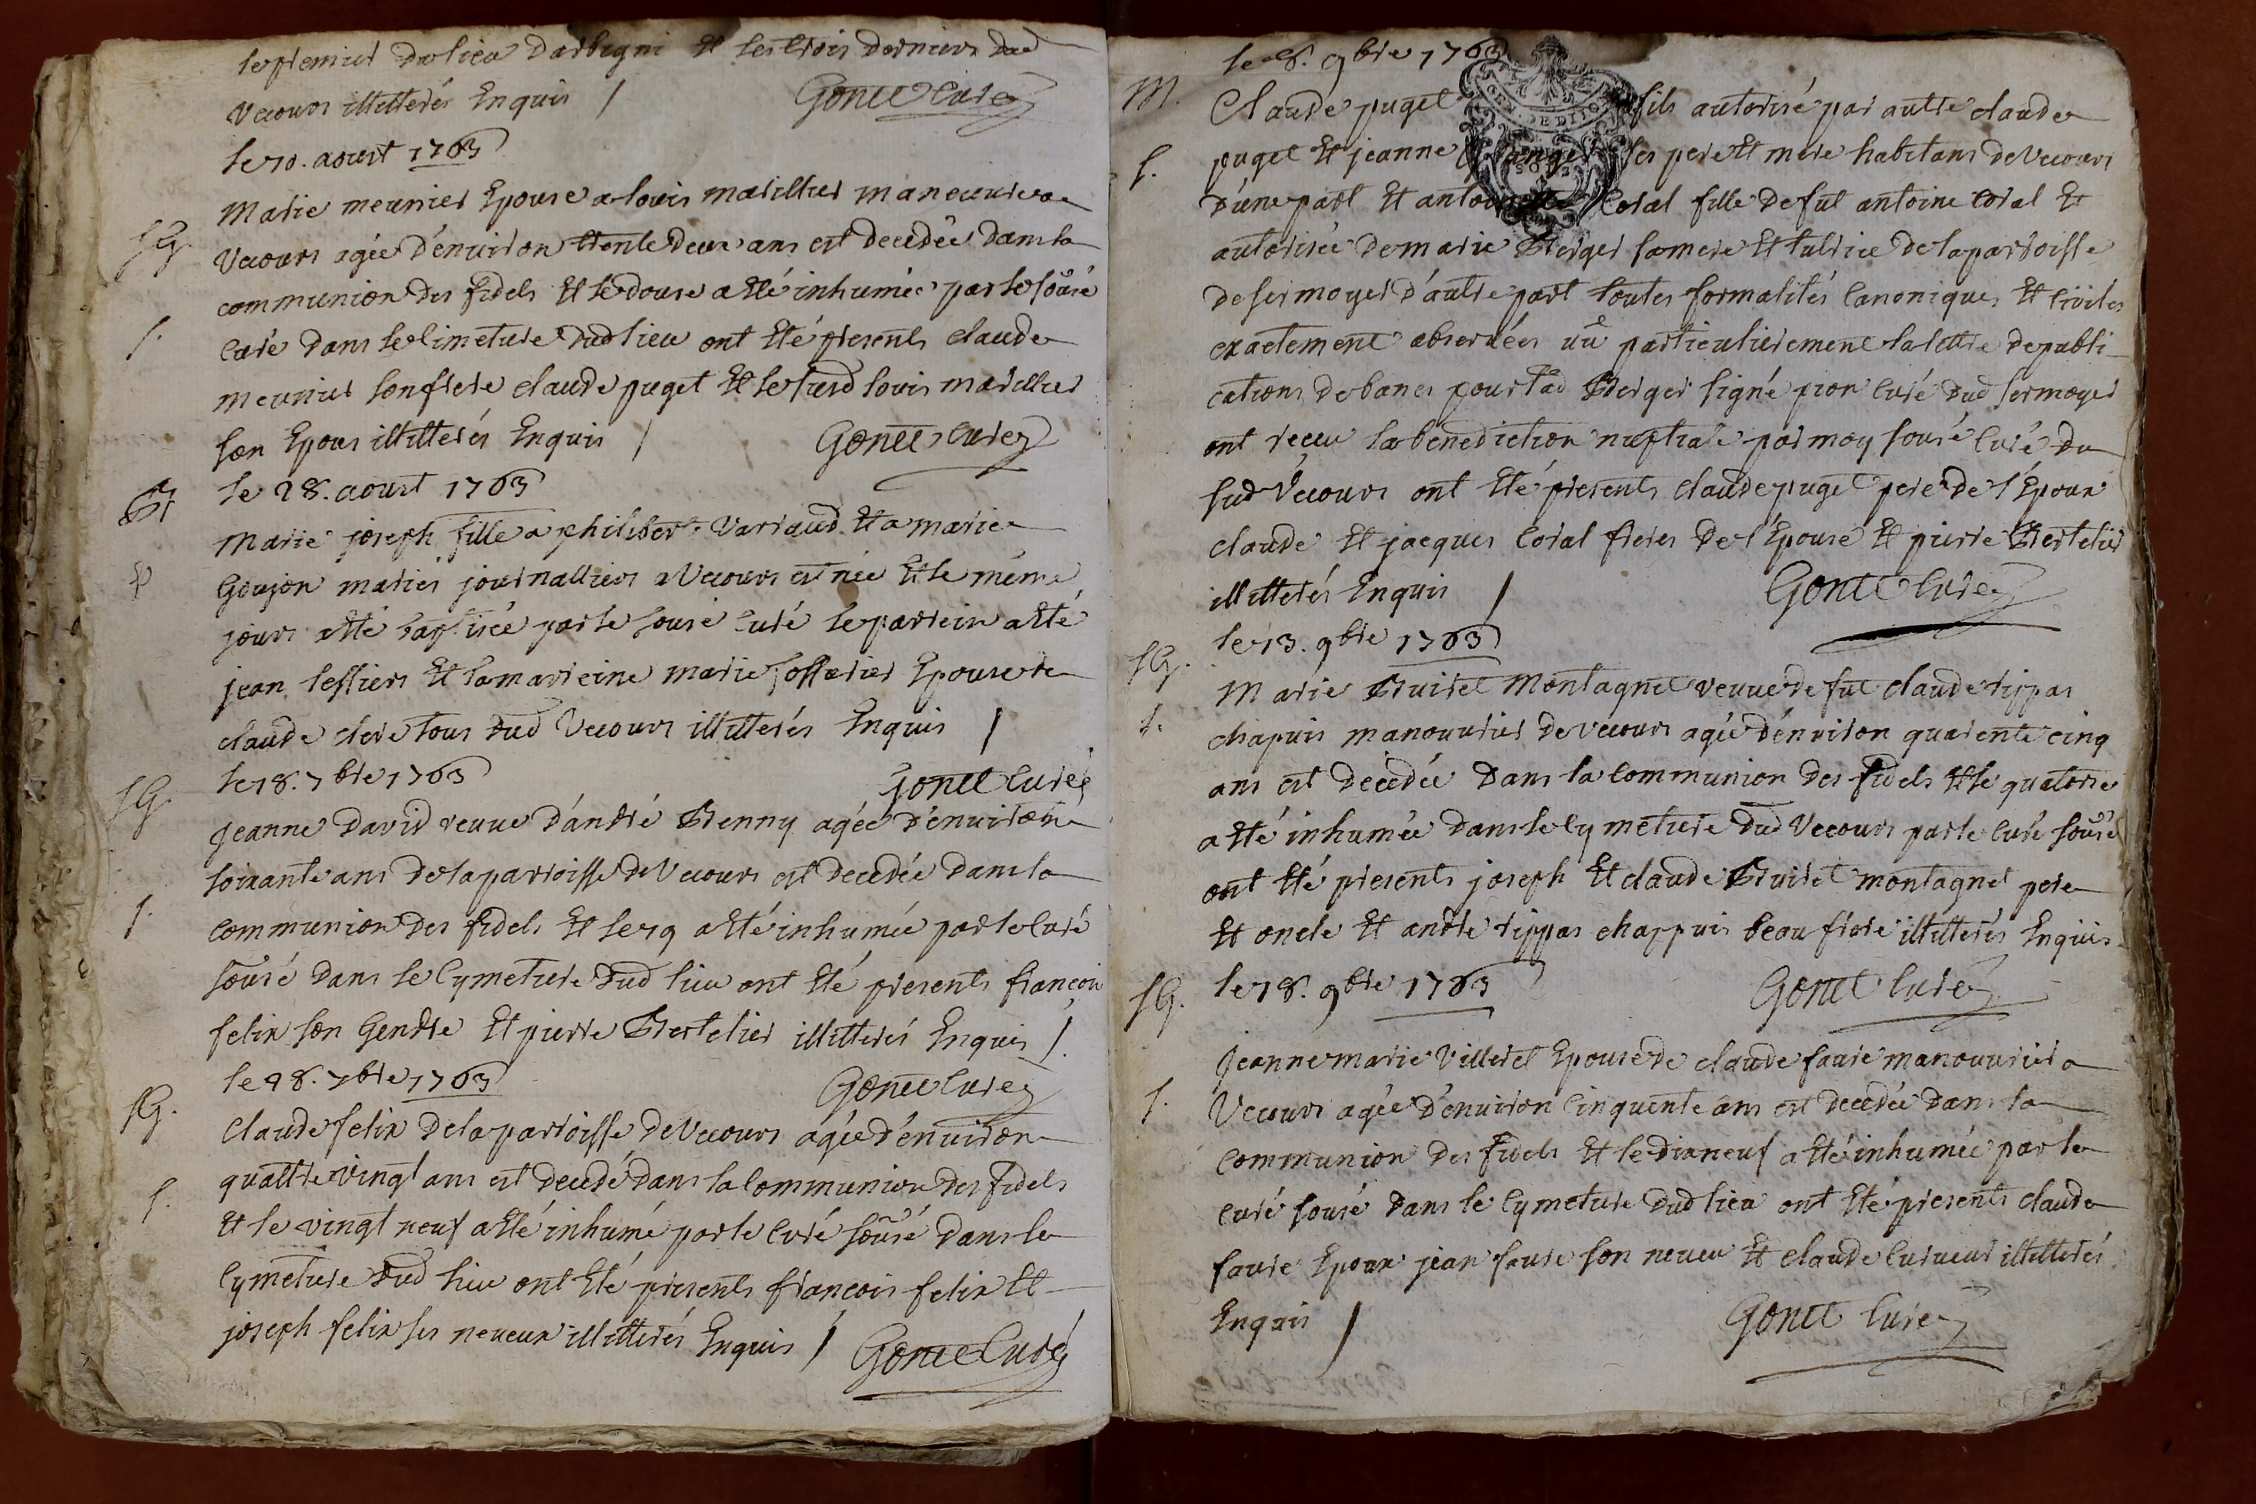 le premier du lieu d'arbigni et les trois derniers dud
Vecours illitterés Enquis / Gonet Curé
le 10. aoust 1763
SG. Marie meunier Epouse a louis marillier manouvrier a
Vecours agée d'environ trente deux ans est decedée dans la
communion des fidels et le douse a été inhumée par le sousé
1. Curé dans le Cimeture dud lieu ont été presents claude
meunier son frere claude puget et le susd louis marillier
son Epoux illitterés Enquis / Gonet Curé
B le 28. aoust 1763
Marie joseph fille a philibert Variaud et a marie
Goujon mariés journalliers a Vecours est née et le même
jours a été baptisée par le sousé Curé le parrein a été
jean tessiers et la marreine marie Epouse de
claude clere tous dud Vecours illitterés Enquis /
SG. le 18. 7bre 1763 Gonet Curé
jeanne david veuve d'andré Brenny agée d'environ
soixante ans de la parroisse de Vecours est decedée dans la
1. communion des fidels et le 19 a été inhumée par le Curé
sousé dans le Cymeture dud lieu ont été presents francois
felix son Gendre et pierre Bertelier illitterés Enquis /.
le 28. 7bre 1763 Gonet Curé
SG. Claude felix de la parroisse de Vecours agée d'environ
quattre vingt ans est decedé dans la Communion des fidels
1. et le vingt neuf a été inhumé par le Curé sousé dans le
Cymeture dud lieu ont été presents francois felix et
joseph felix ses neveux illitterés Enquis / Gonet Curé
le 8. 9bre 1763
M. Claude puget fils autorisé par autre claude
1. puget et jeanne ses pere et mere habitans de Vecours
d'une part et antoinette Coral fille de fut antoine Coral et
autorisée de marie Berger sa mere et tutrice de la parroisse
de sermoyer d'autre part toutes formalités Canoniques et Civiles
exactement observées vû particulierement la lettre de publi-
cations de bancs pour lad Berger signé pion Curé dud sermoyer
ont receu la benediction nuptiale par moy sousé Curé du
sud Vecours ont été presents claude puget pere de l'Epoux
claude et jacques Coral freres de l'Epouse et pierre Bertelier
illitterés Enquis / Gonet Curé
le 13. 9bre 1763
SG. Marie Bruiret Montagnet veuve de fut claude rippas
1. chapuis manouvrier de vecours agée d'environ quarente cinq
ans est decedée dans la Communion des fidels et le quatorse
a été inhumée dans le Cymeture dud Vecours par le Curé sousé
ont été presents joseph et claude Bruiret montagnet pere
et oncle et andré rippas chappuis beau frere illitterés Enquis
SG. le 18. 9bre 1763 Gonet Curé
Jeanne marie Villeret Epouse de claude faure manouvrier a
1. Vecours agée d'environ Cinquente ans est decedée dans la
communion des fidels et le dix neuf a été inhumée par le
curé sousé dans le Cymeture dud lieu ont été presents claude
faure Epoux jean faure son neveu et claude Curveur illitterés
Enquis / Gonet Curé